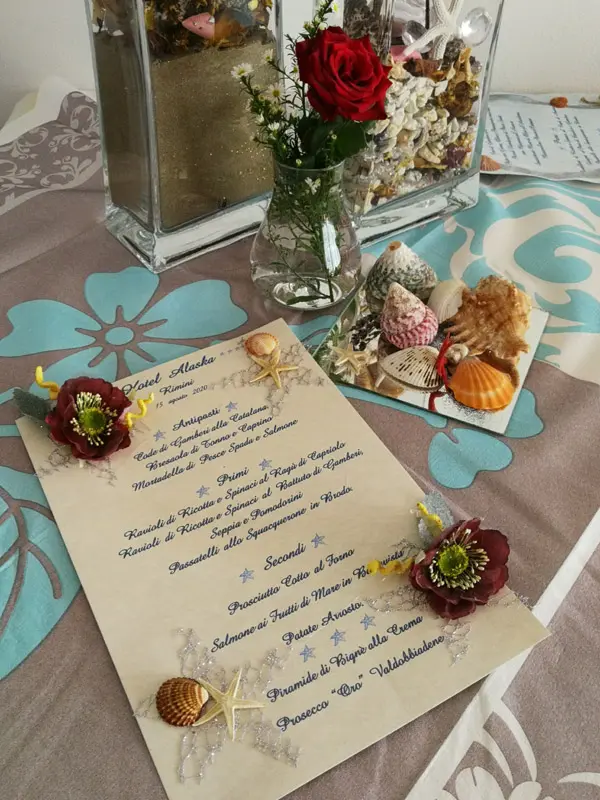 Hotel Alaska
Rimini
15 agosto 2020
Antipasti
Code di Gamberi alla Catalana
Bresaola di Tonno e Caprino
Mortadella di Pesce Spada e Salmone
Primi
Ravioli di Ricotta e Spinaci al Ragù di Capriolo
Ravioli di Ricotta e Spinaci al Battuto di Gamberi,
Seppia e Pomodorini
Passatelli allo Squacquerone in Brodo.
Secondi
Prosciutto Cotto al Forno
Salmone ai Frutti di Mare in
Patate Arrosto.
Piramide di Bignè alla Crema
Prosecco "Oro" Valdobbiadene